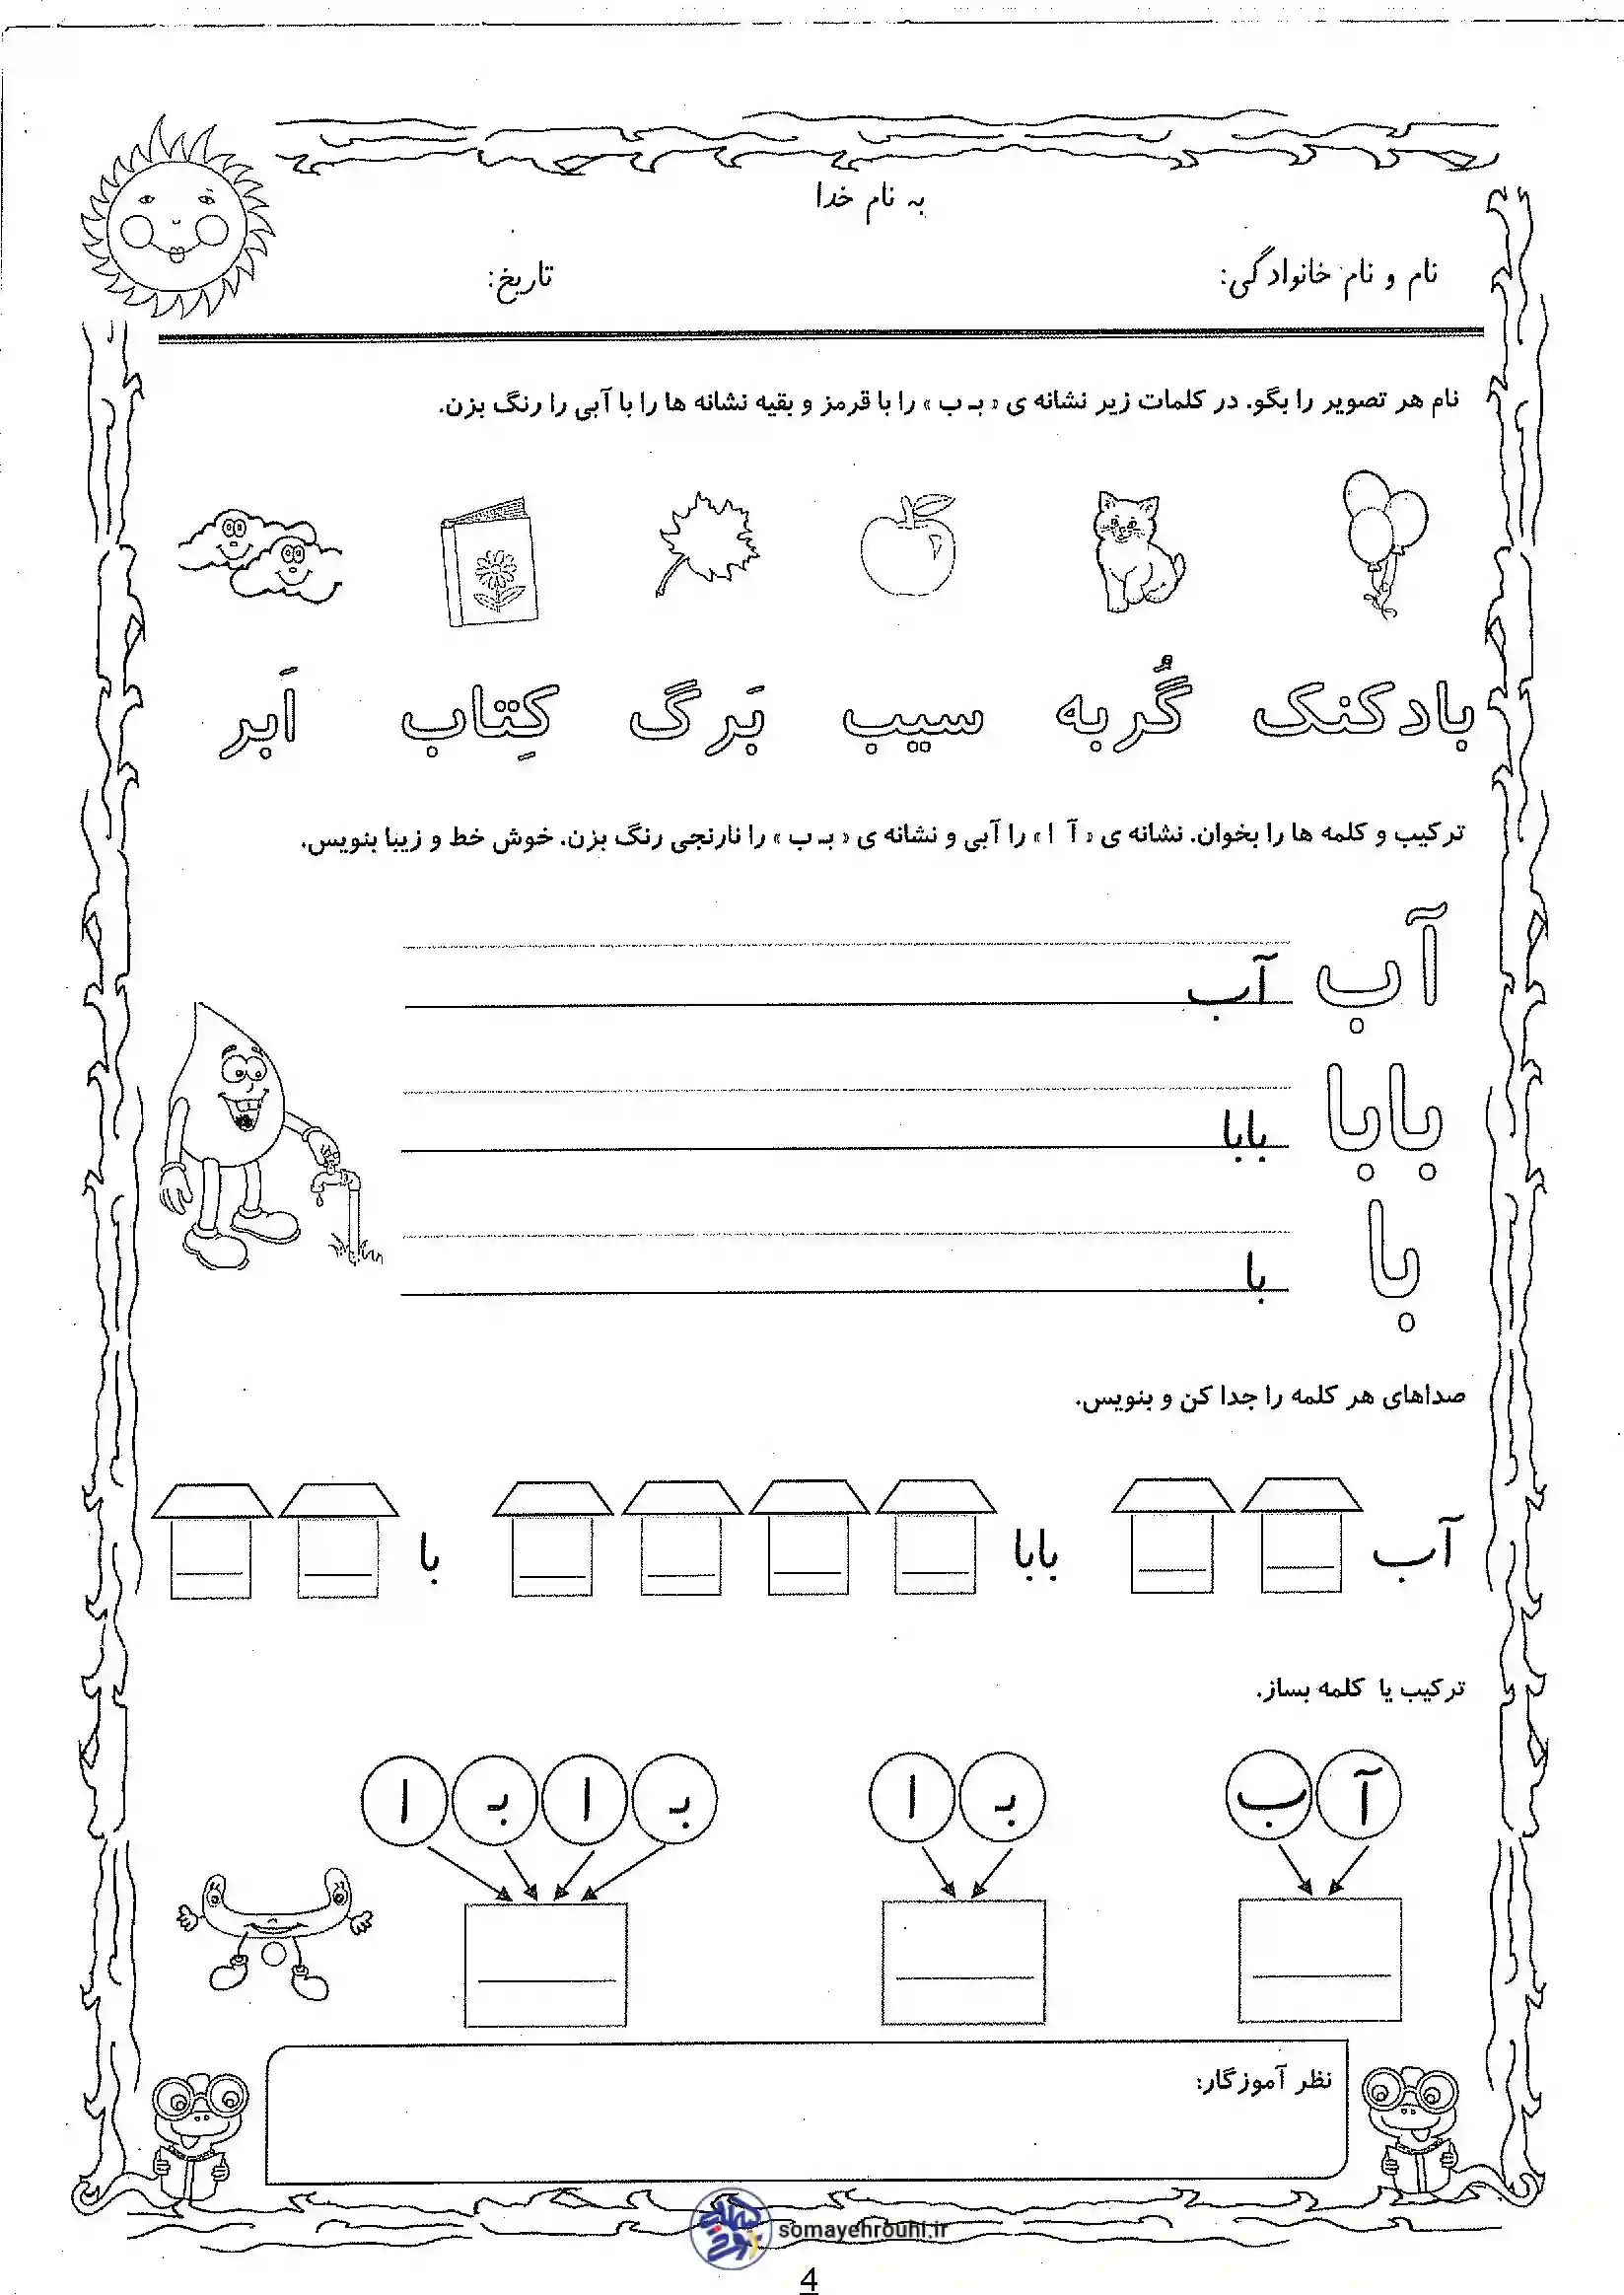 به نام خدا
نام و نام خانوادگی: تاریخ:
نام هر تصویر را بگو. در کلمات زیر نشانه ی « بـ ب » را با قرمز و بقیه نشانه ها را با آبی را رنگ بزن.
بادکنک گُربه سیب بَرگ کِتاب اَبر
ترکیب و کلمه ها را بخوان. نشانه ی « آ ا » را آبی و نشانه ی « بـ ب » را نارنجی رنگ بزن. خوش خط و زیبا بنویس.
آب آب
بابا بابا
با با
صداهای هر کلمه را جدا کن و بنویس.
آب بابا با
ترکیب یا کلمه بساز.
آ ب بـ ا بـ ا بـ ا
نظر آموزگار:
سمیه روحی somayehrouhi.ir
4